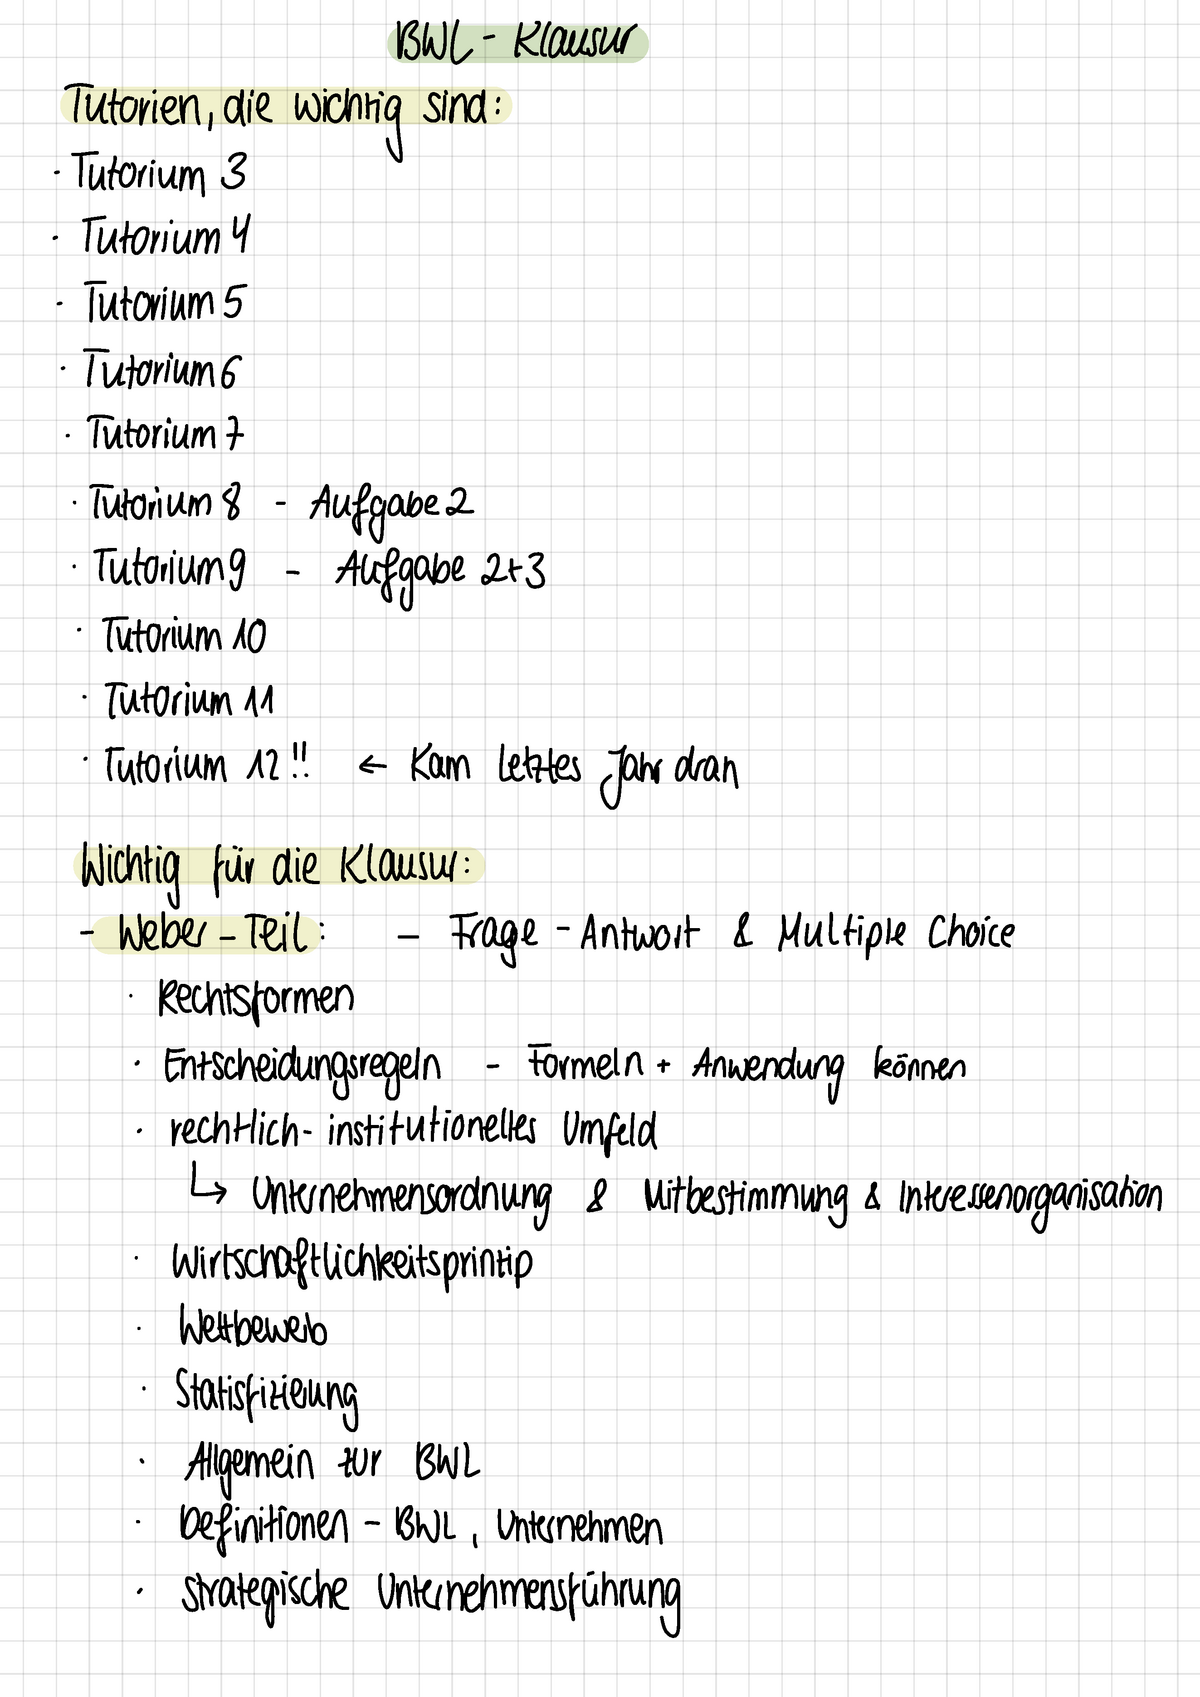 BWL - Klausur
Tutorien, die wichtig sind:
· Tutorium 3
· Tutorium 4
· Tutorium 5
· Tutorium 6
· Tutorium 7
· Tutorium 8 - Aufgabe 2
· Tutorium 9 - Aufgabe 2+3
· Tutorium 10
· Tutorium 11
· Tutorium 12 !! ← Kam letztes Jahr dran
Wichtig für die Klausur:
- Weber - Teil: - Frage - Antwort & Multiple Choice
· Rechtsformen
· Entscheidungsregeln - Formeln + Anwendung können
· rechtlich - institutionelles Umfeld
↳ Unternehmensordnung & Mitbestimmung & Interessenorganisation
· Wirtschaftlichkeitsprintip
· Wettbewerb
· Statisfizierung
· Allgemein zur BWL
· Definitionen - BWL, Unternehmen
· strategische Unternehmensführung